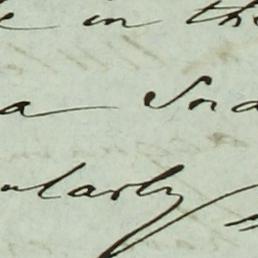 in the
a Ind
ularly